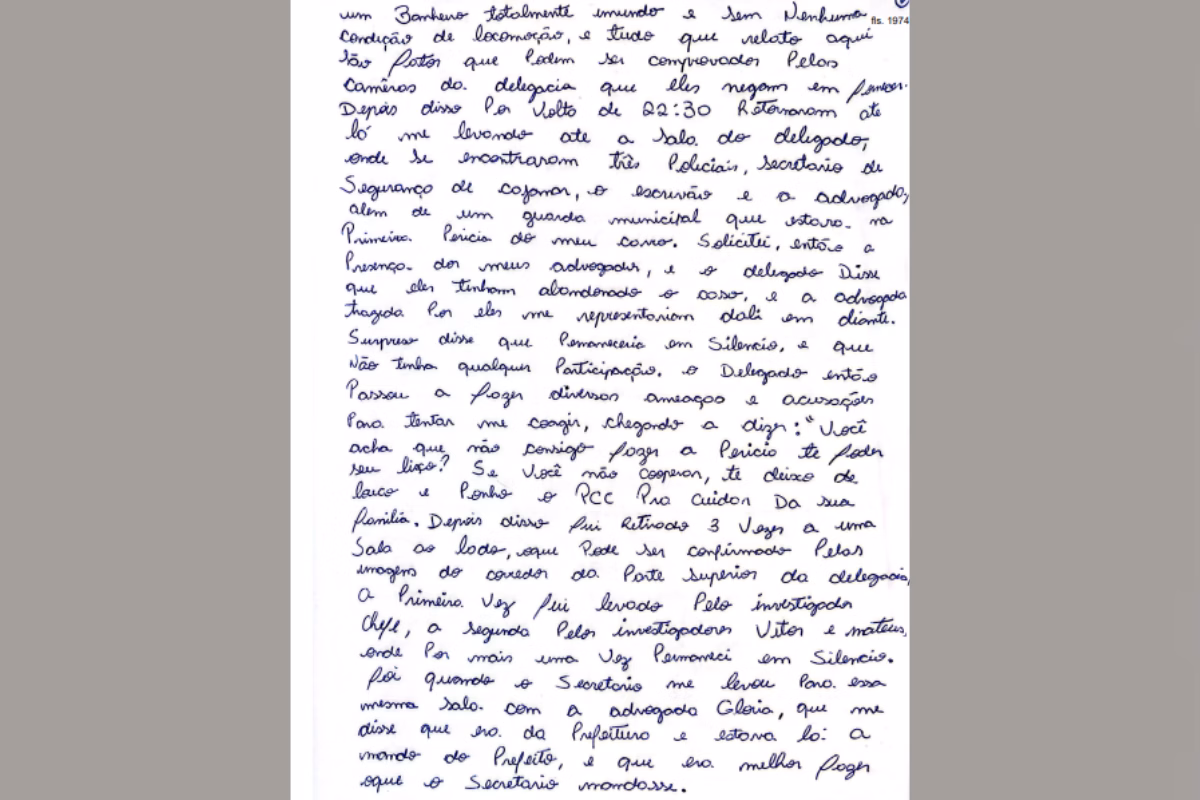 fls. 1974
um Banheiro totalmente imundo e sem Nenhuma
condição de locomoção, e tudo que relato aqui
são fatos que Podem ser comprovados Pelas
Camêras da delegacia que eles negam em
Depois disso Por Volta de 22:30 Retornaram até
lá me levando ate a sala do delegado,
onde se encontraram três Policiais, secretario de
Segurança de cajamar, o escrivão e a advogada,
alem de um guarda municipal que estava na
Primeira Pericia do meu carro. Solicitei, então a
Presença dos meus advogados, e o delegado Disse
que eles tinham abandonado o caso, e a advogada
trazida Por eles me representariam dali em diante.
Surpreso disse que Permaneceria em Silencio, e que
Não tinha qualquer Participação. o Delegado então
Passou a fazer diversas ameaças e acusações
Para tentar me coagir, chegando a dizer: "Você
acha que não consigo fazer a Pericia te foder
seu lixo? Se Você não cooperar, te deixo de
laico e Ponho o PCC Pra cuidar Da sua
familia. Depois disso fui Retirado 3 Vezes a uma
Sala ao lado, oque Pode ser confirmado Pelas
imagens do corredor da Parte superior da delegacia,
a Primeira Vez fui levado Pelo investigador
Chefe, a segunda Pelos investigadores Vitor e mateus,
onde Por mais uma Vez Permaneci em Silencio.
foi quando o Secretario me levou Para essa
mesma sala com a advogada Gloria, que me
disse que era da Prefeitura e estava la a
mando do Prefeito, e que era melhor fazer
oque o Secretario mandasse.